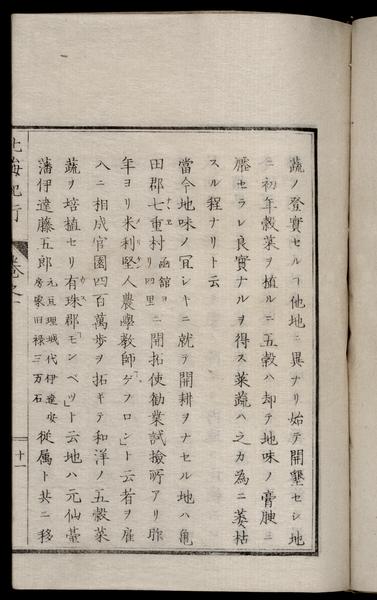 蔬ノ登實セルヿ他地ニ異ナリ始テ開墾セシ地
ニ初年穀菜ヲ植ルニ五穀ハ却テ地味ノ膏腴ニ
壓セラレ良實ナルヲ得ス菜蔬ハ之カ為ニ萎枯
スル程ナリト云
當今地味ノ冝シキニ就テ開耕ヲナセル地ハ亀
田郡七重村函館ヨリ四里ニ開拓使勧業試撿所アリ昨
年ヨリ米利堅人農學教師ゲフロン」ト云者ヲ雇
入ニ相成官園四百萬歩ヲ拓キテ和洋ノ五穀菜
蔬ヲ培植セリ有珠郡モンベツ」ト云地ハ元仙臺
藩伊達藤五郎元亘理城代伊達安房家旧禄三万石従属ト共ニ移
北海紀行 巻之一
十一